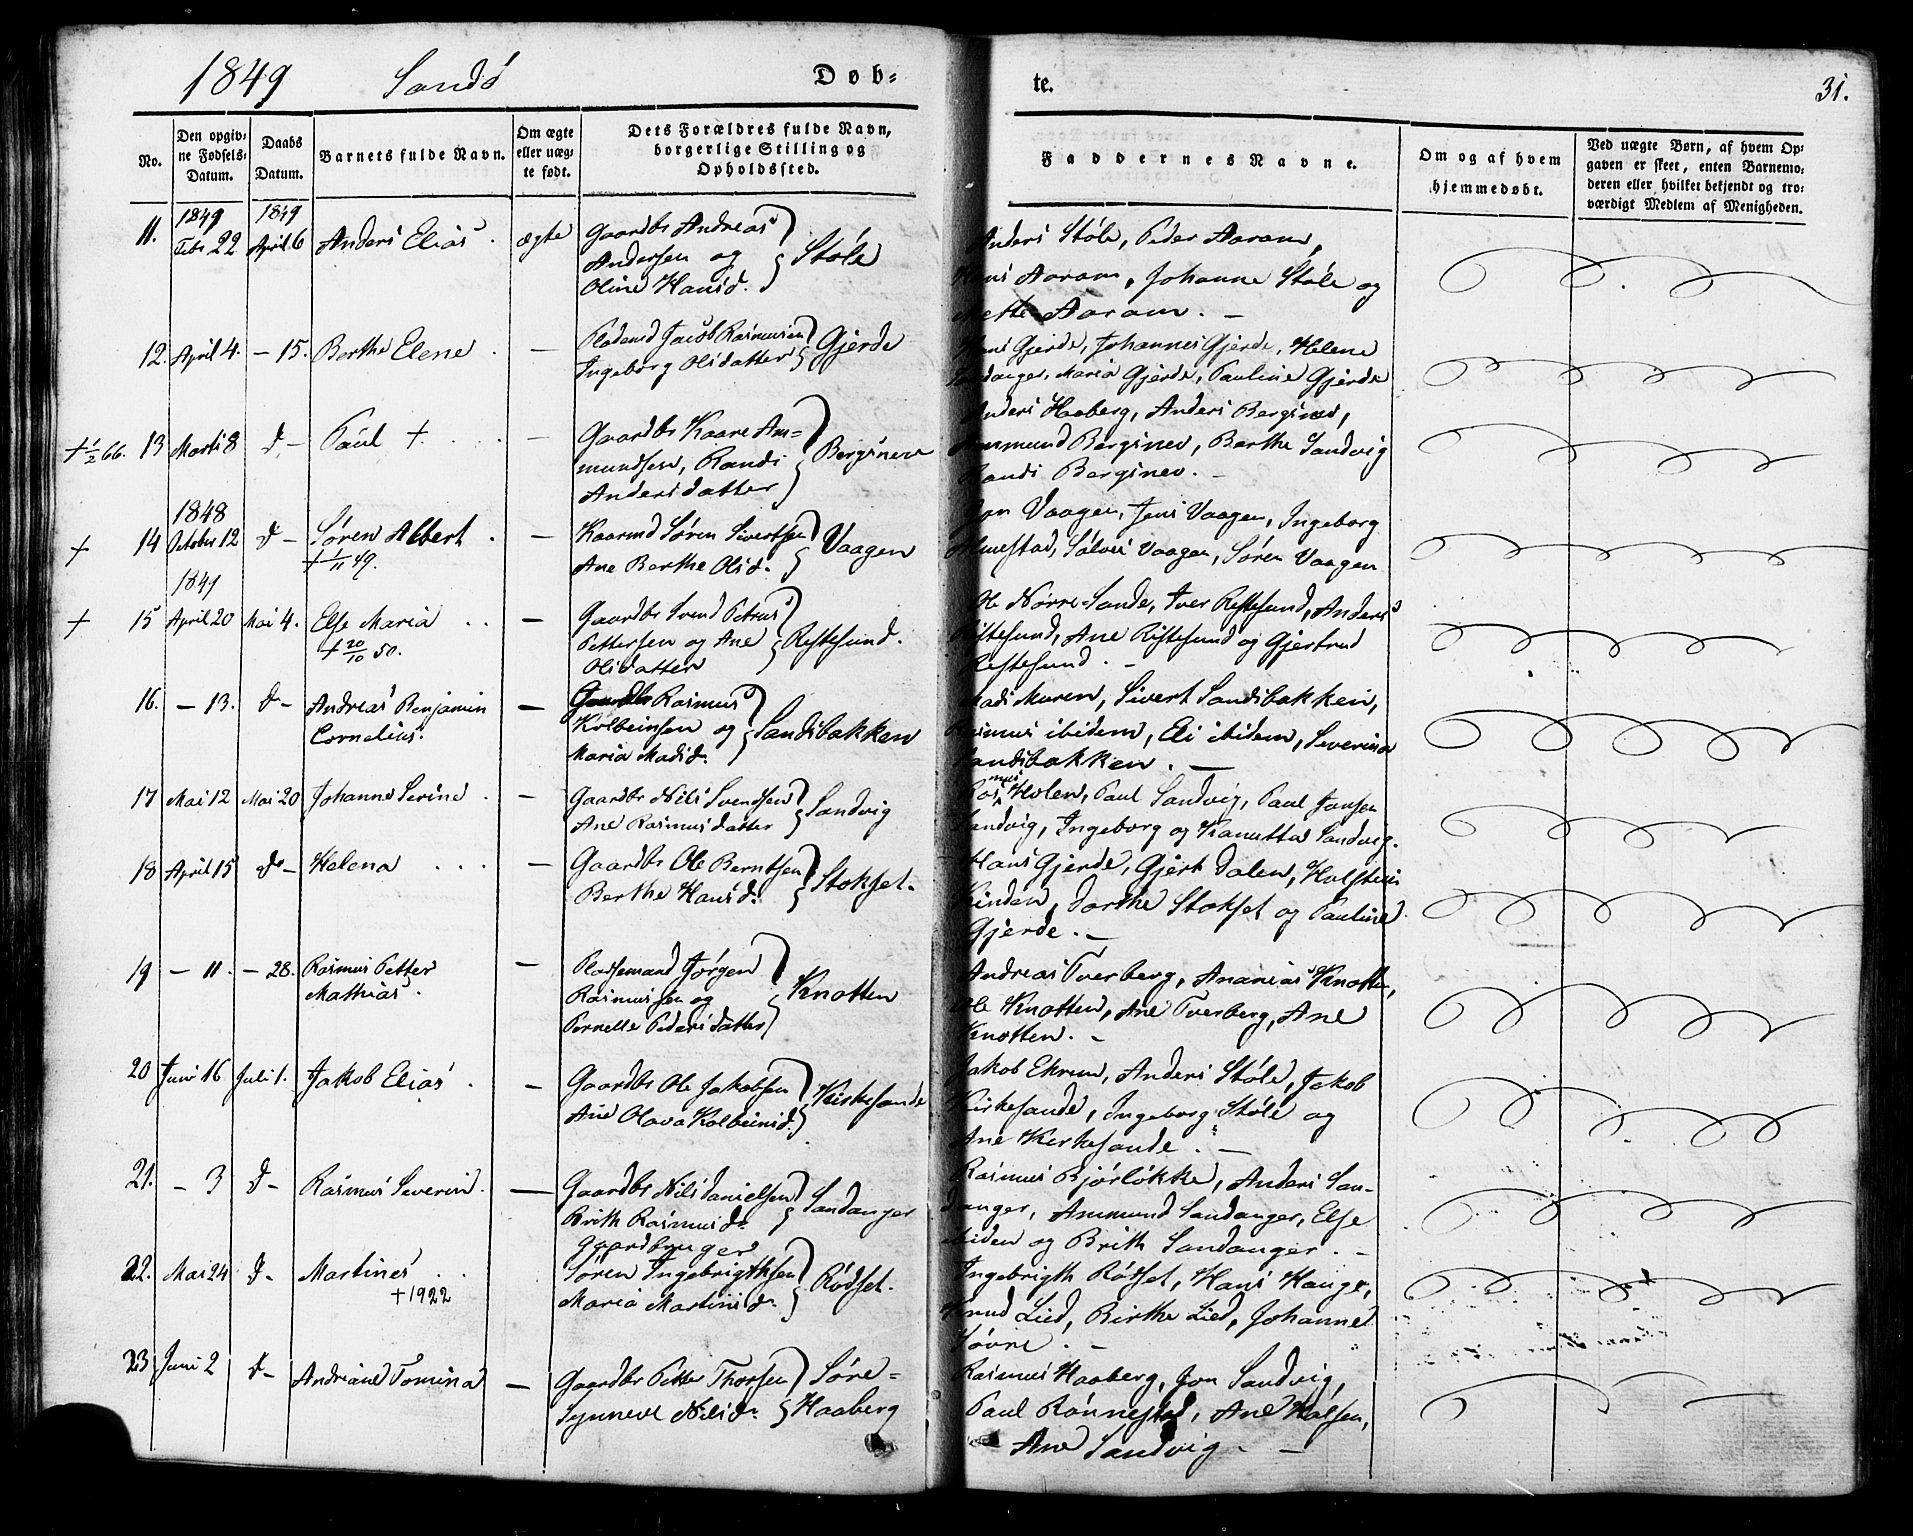 1849 Sandö Døb-
te. 31.
No.
Den opgiv-
ne Fødsels-
Datum.
Daabs
Datum.
Barnets fulde Navn.
Om ægte
eller uæg-
te født.
Dets Forældres fulde Navn,
borgerlige Stilling og
Opholdssted.
Faddernes Navne.
Om og af hvem
hjemmedøbt.
Ved uægte Børn, af hvem Op-
gaven er skeet, enten Barnemo-
deren eller hvilket bekjendt og tro-
værdigt Medlem af Menigheden.
1849 1849
11. Febr 22 April 6 Anders Elias. ægte Gaardbr Andreas
Andersen og Støle
Oline Hansd.
Anders Støle, Peder Aaram,
Hans Aaram, Johanne Støle og
Mette Aaram. —
12. April 4. — 15. Berthe Elene — Pladsmd Jacob Rasmussen
Ingeborg Olsdatter Gjerde
Hans Gjerde, Johannes Gjerde, Helene
Sandanger, Maria Gjerde, Pauline Gjerde
+ 1/2 66. 13 Marts 8 d— Paul + — Gaardbr Kaare Am-
mundsen, Randi Bergsnev
Andersdatter
Anders Haaberg, Anders Bergsnev,
Ammund Bergsnev, Berthe Sandvig
Randi Bergsnev. —
1848
+ 14 October 12 d— Søren Albert —
+ 1/11 49.
Kaarmd Søren Sivertsen
Ane Berthe Olsd. Vaagen
Jon Vaagen, Jens Vaagen, Ingeborg
Almestad, Sølvei Vaagen, Søren Vaagen
1849
+ 15 April 20 Mai 4. Else Maria —
+ 20/10 50.
Gaardbr Svend Petrus
Pettersen og Ane Røstesund.
Olsdatter
Ole Nørre-Sande, Iver Røstesund, Anders
Røstesund, Ane Røstesund og Gjertrud
Røstesund. —
16. — 13. d— Andreas Benjamin —
Cornelius.
Rasmus
Kolbeinsen og Sandsbakken
Maria Madsd.
Mads Muren, Sivert Sandsbakken,
Rasmus ibidem, Eli ibidem, Severina
Sandsbakken. —
17 Mai 12 Mai 20 Johanne Serine. — Gaardbr Nils Svendsen
Ane Rasmusdatter Sandvig
Rasmus Holen, Paul Sandvig, Paul Jonsen
Sandvig, Ingeborg og Kanutta Sandvig.
18 April 15 do— Helena — Gaardbr Ole Berntsen
Berthe Hansd. Stokset.
Hans Gjerde, Gjert Dalen, Holsten
Kinden, Dorthe Stokset og Pauline
Gjerde. —
19 — 11. — 28. Rasmus Petter —
Mathias.
Pladsemand Jørgen
Rasmussen og Knotten
Pernelle Pedersdatter
Andreas Tverberg, Ananias Knotten,
Ole Knotten, Ane Tverberg, Ane
Knotten. —
20 Juni 16 Juli 1. Jakob Elias. — Gaardbr Ole Jakobsen
Ane Olava Kolbeinsd. Kirkesande
Jakob Ekrem, Anders Støle, Jakob
Kirkesande, Ingeborg Støle og
Ane Kirkesande. —
21. — 3 d— Rasmus Severin. — Gaardbr Nils Danielsen
Brith Rasmusd. Sandanger
Rasmus Bjørløkke, Anders San-
danger, Ammund Sandanger, Else
ibidem og Brith Sandanger. —
22. Mai 24 d— Martines
+ 1922
Gaardbruger
Søren Ingebrigthsen
Maria Martinsd. Rödset.
Ingebrigth Rödset, Hans Hauge,
Knud Lied, Birthe Lied, Johanne
Søvre. —
23 Juni 2 d— Andriane Tomina — Gaardbr Petter Thorsen Søre-
Synneve Nilsd. Haaberg
Rasmus Haaberg, Jon Sandvig,
Paul Rönnestad, Ane Halsen,
Ane Sandvig. —